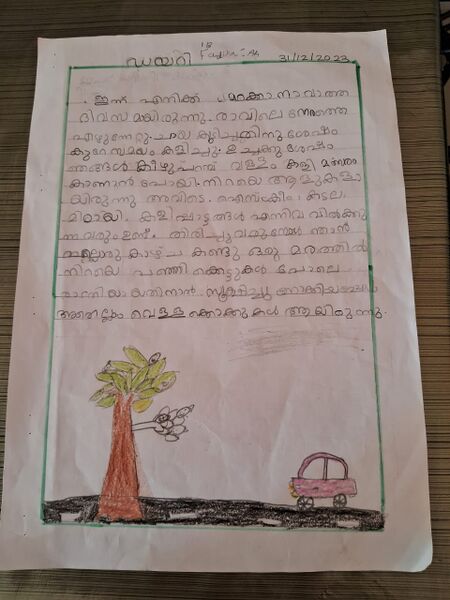 ഡയറി
31/12/2023
ഇന്ന് എനിക്ക് മറക്കാനാവാത്ത
ദിവസമായിരുന്നു. രാവിലെ നേരത്തെ
എഴുന്നേറ്റു. ചായ കുടിച്ചതിനു ശേഷം
കുറേ സമയം കളിച്ചു. ഉച്ചക്കു ശേഷം
ഞങ്ങൾ കീഴുപറമ്പ് വള്ളം കളി മത്സരം
കാണാൻ പോയി. നിറയെ ആളുകളാ
യിരുന്നു അവിടെ. ഐസ്ക്രീം, കടല
മിഠായി. കളിപ്പാട്ടങ്ങൾ എന്നിവ വിൽക്കു
ന്നവരും ഉണ്ട്. തിരിച്ചുവരുമ്പോൾ ഞാൻ
നല്ലൊരു കാഴ്ച കണ്ടു ഒരു മരത്തിൽ
നിറയെ പഞ്ഞിക്കെട്ടുകൾ പോലെ
തോന്നിയതിനാൽ സൂക്ഷിച്ചു നോക്കിയപ്പോൾ
അതെല്ലാം വെള്ള കൊക്കുകൾ ആയിരുന്നു.